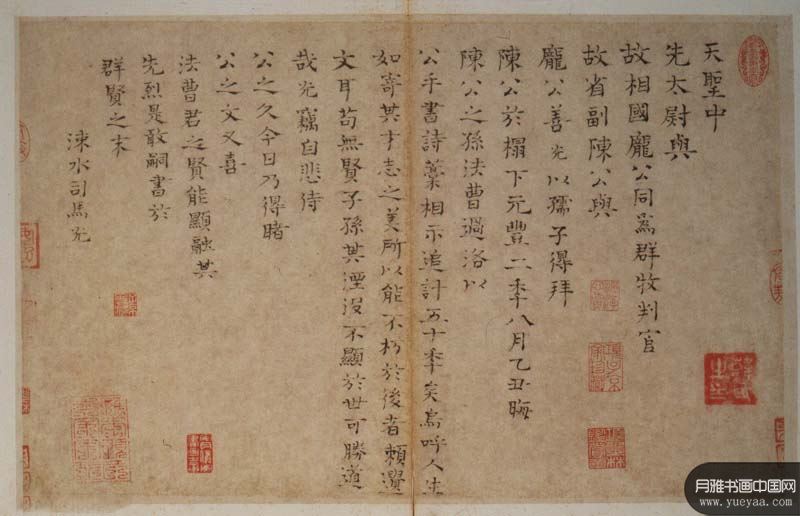 天聖中
先太尉與
故相國龐公同爲群牧判官
故省副陳公與
龐公善光以孺子得拜
陳公於榻下元豐二季八月乙丑晦
陳公之孫法曹過洛以
公手書詩藁相示追計五十季矣嗚呼人生
如寄其才志之美所以能不朽於後者賴遺
文耳苟無賢子孫其湮沒不顯於世可勝道
哉光竊自悲侍
公之久今日乃得睹
公之文又喜
法曹君之賢能顯融其
先烈是敢嗣書於
群賢之末
涑水司馬光
月雅书画中国网
www.yueyaa.com